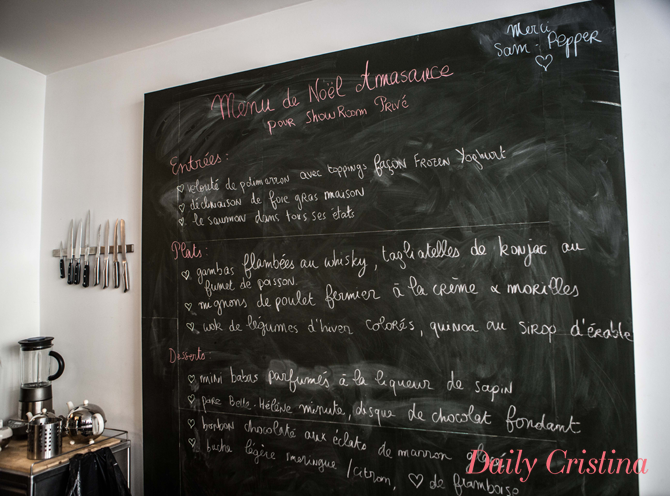 Merci
Sam Pepper
Menu de Noël Amasauce
pour ShowRoom Privé
Entrées:
velouté de potimarron avec toppings façon Frozen Yoghurt
déclinaison de foie gras maison
le saumon dans tous ses états
Plats:
gambas flambées au whisky, tagliatelles de konjac au
fumet de poisson
mignons de poulet fermier à la crème & morilles
wok de légumes d'hiver colorés, quinoa au sirop d'érable
Desserts:
mini babas parfumés à la liqueur de sapin
poire Belle-Hélène minute, disque de chocolat fondant
bonbon chocolaté aux éclats de marron
buche légère meringue/citron, ♡ de framboise
Daily Cristina